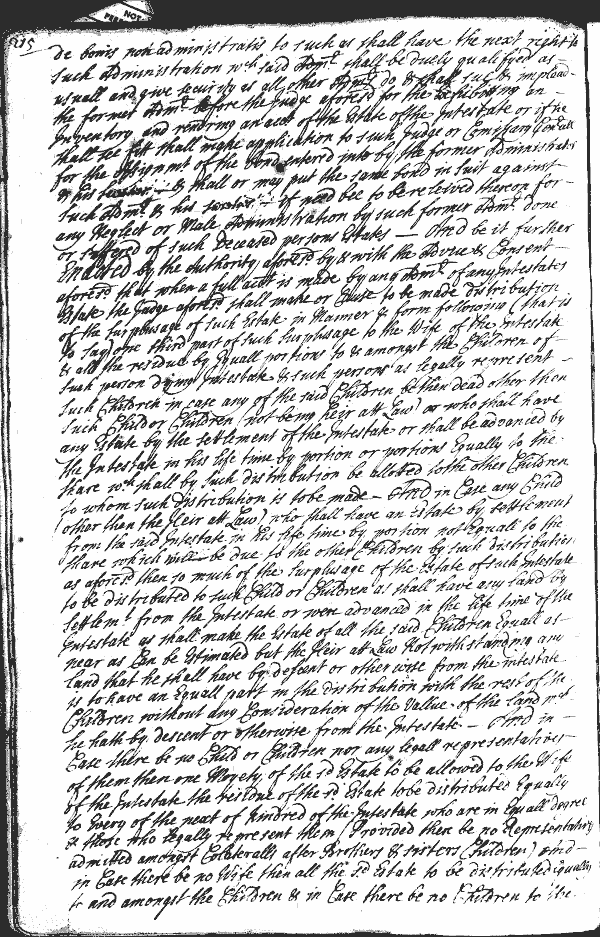 NOT
215
de bonis non administratis to such as shall have the next right to
such Administration wch said Admr. shall be duely qualifyed as
usuall and give security as all other Admrs. do & shall sue & implead
the former Admr. before the Judge aforesd for the Exhibiting an
Inventory and rendring an acct of the Estate of the Intestate or if he
shall see fit shall make application to such Judge or Comissary Generall
for the Assignmt of the bond entered into by the former Administrator
& his & shall or may put the same bond in suit against
such Admr. & his if need bee to be received thereon for
any Neglect or Male Administration by such former Admr. done
or suffered of such deceased persons Estates — And be it further
Enacted by the Authority aforesd by & with the Advice & Consent
aforesd. that when a full acct is made by any Admr. of any Intestates
Estate the Judge aforesd. shall make or Cause to be made distribution
of the surplusage of such Estate in Manner & form following (that is
to say) one third part of such surplusage to the Wife of the Intestate
& all the residue by Equall portions to & amongst the Children of
such person dying Intestate & such persons as legally represent
such Children in case any of the said Children be then dead other than
such Child or Children (not being heir att Law) or who shall have
any Estate by the settlement of the Intestate or shall be advanced by
the Intestate in his life time by portion or portions Equally to the
share wch shall by such distribution be allotted to the other Children
to whom such distribution is to be made — And in Case any Child
(other than the Heir att Law) who shall have an Estate by settlement
from the said Intestate in his life time by portion not Equall to the
share which will be due to the other Children by such distribution
as aforesd then so much of the surplusage of the Estate of such Intestate
to be distributed to such Child or Children as shall have any land by
settlemt. from the Intestate or were advanced in the life time of the
Intestate as shall make the Estate of all the said Children Equall as
near as Can be Estimated but the Heir att Law Notwithstanding any
land that he shall have by descent or otherwise from the intestate
is to have an Equall part in the distribution with the rest of the
Children without any Consideration of the Value of the land wch
he hath by descent or otherwise from the Intestate — And in
Case there be no Child or Children nor any legall representatives
of them then one Moyety of the sd Estate to be allowed to the Wife
of the Intestate the residue of the sd Estate to be distributed Equally
to Every of the next of kindred of the Intestate who are in Equall degree
& those who legally represent them (Provided there be no Representatives
admitted amongst Collateralls after Brothers & sisters Children) and
in Case there be no Wife then all the sd Estate to be distributed equally
to and amongst the Children & in Case there be no Children to the